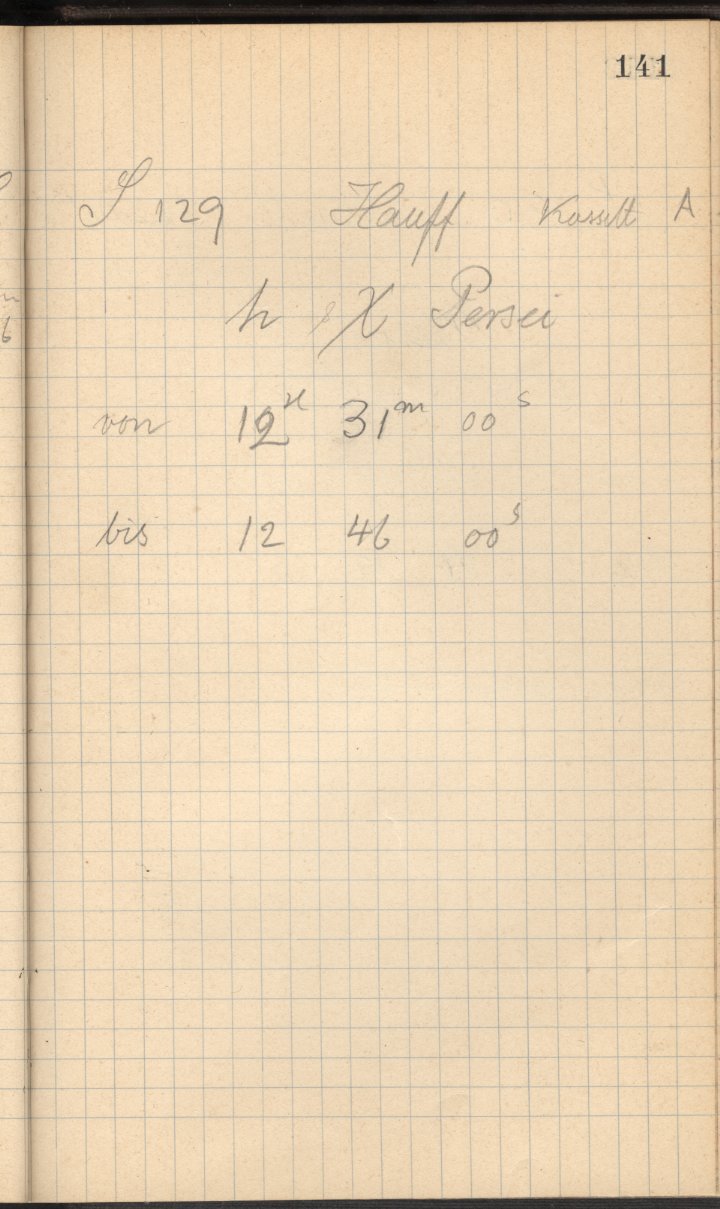 141
S 129 Hauff A
h & χ Persei
von 12ʰ 31ᵐ 00ˢ
bis 12 46 00ˢ